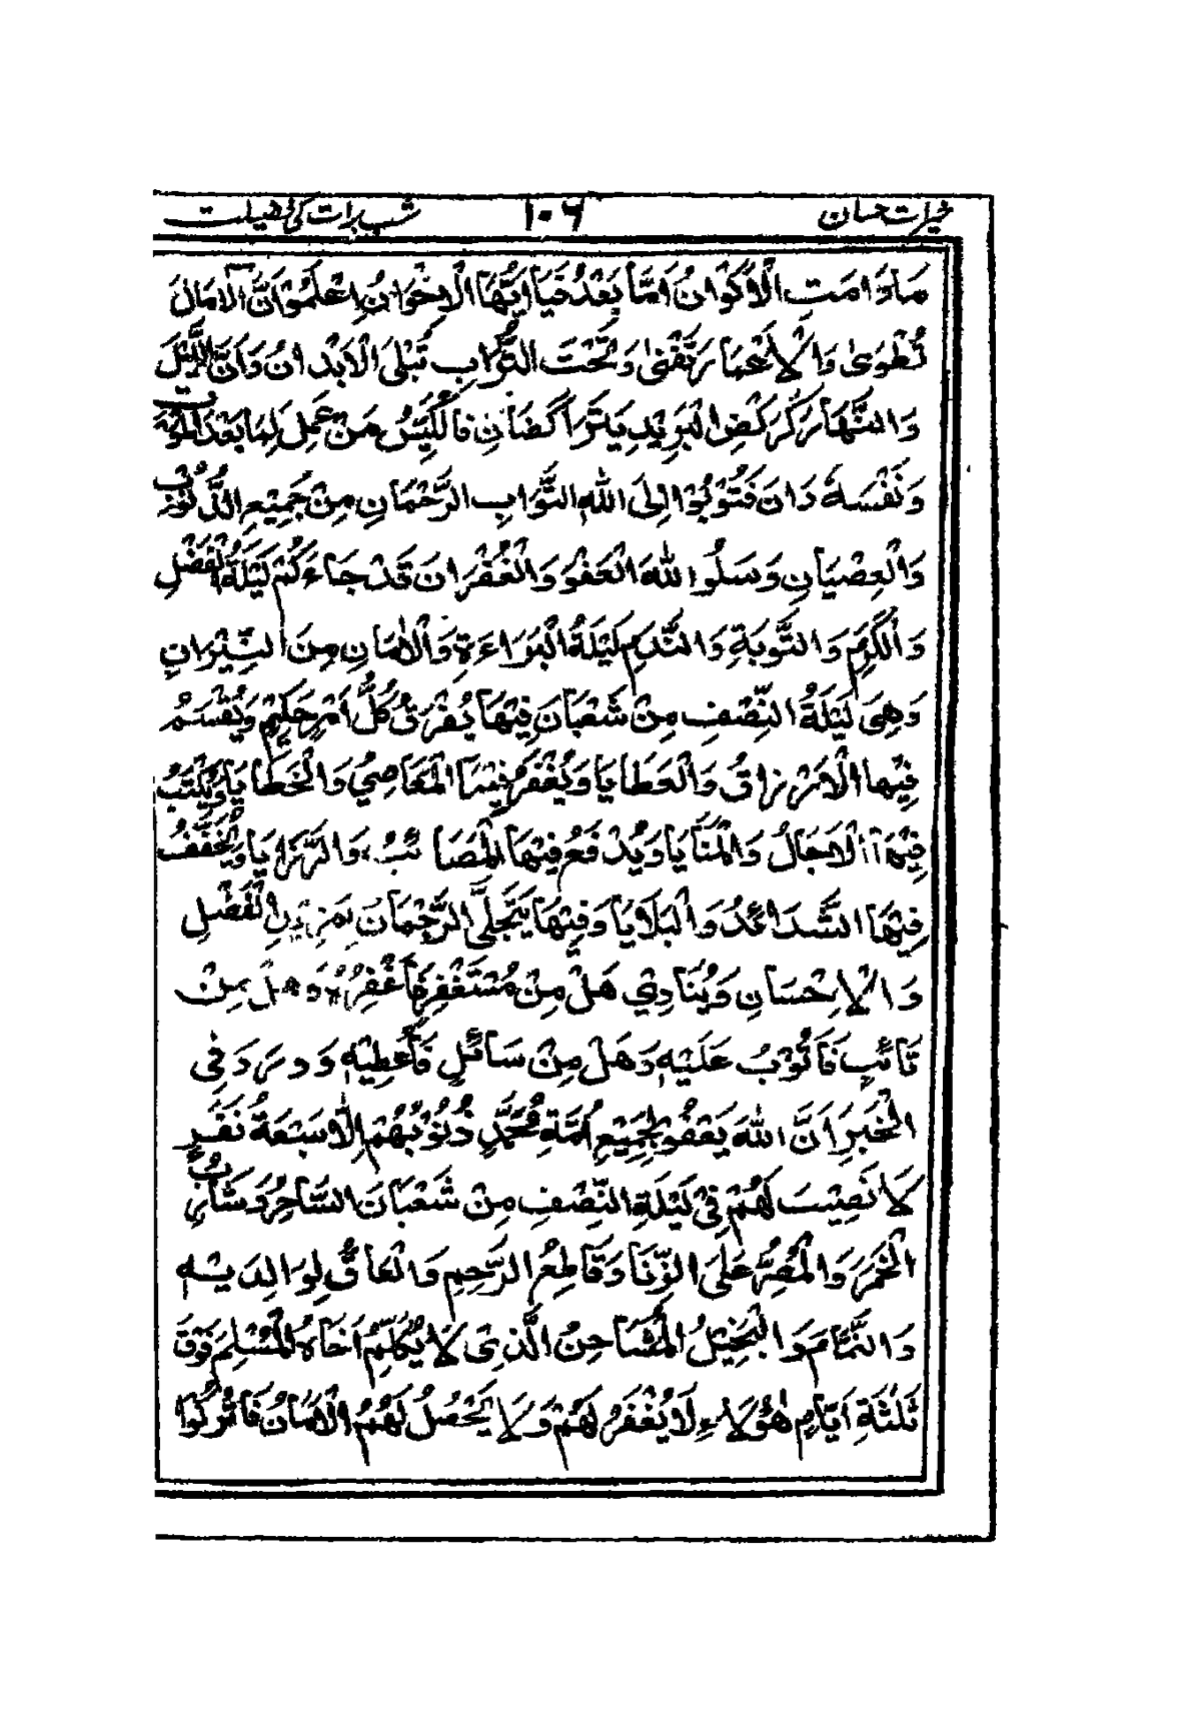 خیرات حسان ۱۰۶ شب برات کی فضیلت
مَادَامَتِ الْاَکْوَانُ اَمَّا بَعْدُ فَیَا اَیُّهَا الْاِخْوَانُ اِعْلَمُوْا اَنَّ الْاٰمَالَ
تُطْوٰی وَالْاَعْمَارَ تَفْنٰی وَتَحْتَ التُّرَابِ تَبْلَی الْاَبْدَانُ وَاَنَّ اللَّیْلَ
وَالنَّهَارَ کَرَکْضِ الْبَرِیْدِ یَتَرَاکَضَانِ فَالْکَیِّسُ مَنْ عَمِلَ لِمَا بَعْدَ الْمَوْتِ
وَنَفْسَهٗ دَانَ فَتُوْبُوْا اِلَی اللّٰهِ التَّوَّابِ الرَّحْمَانِ مِنْ جَمِیْعِ الذُّنُوْبِ
وَالْعِصْیَانِ وَسَلُوا اللّٰهَ الْعَفْوَ وَالْغُفْرَانَ قَدْ جَاءَکُمْ لَیْلَةُ الْفَضْلِ
وَالْکَرَمِ وَالتَّوبَةِ وَالنَّدَمِ لَیْلَةُ الْبَرَاءَةِ وَالْاَمَانِ مِنَ النِّیْرَانِ
وَهِیَ لَیْلَةُ النِّصْفِ مِنْ شَعْبَانَ فِیْهَا یُفْرَقُ کُلُّ اَمْرٍ حَکِیْمٍ وَیُقْسَمُ
فِیْهَا الْاَرْزَاقُ وَالْعَطَایَا وَیُغْفَرُ فِیْهَا الْمَعَاصِیْ وَالْخَطَایَا وَیُکْتَبُ
فِیْهَا الْاٰجَالُ وَالْمَنَایَا وَیُدْفَعُ فِیْهَا الْمَصَائِبُ وَالرَّزَایَا وَیُخَفَّفُ
فِیْهَا الشَّدَائِدُ وَالْبَلَایَا وَفِیْهَا یَتَجَلَّی الرَّحْمَانُ بِمَزِیْدِ الْفَضْلِ
وَالْاِحْسَانِ وَیُنَادِیْ هَلْ مِنْ مُسْتَغْفِرٍ فَاَغْفِرُ لَهٗ وَهَلْ مِنْ
تَائِبٍ فَاَتُوْبُ عَلَیْهِ وَهَلْ مِنْ سَائِلٍ فَاُعْطِیْهِ وَوَرَدَ فِی
الْخَبَرِ اَنَّ اللّٰهَ یَعْفُو لِجَمِیْعِ اُمَّةِ مُحَمَّدٍ ذُنُوْبَهُمْ اِلَّا سَبْعَةُ نَفَرٍ
لَا نَصِیْبَ لَهُمْ فِیْ لَیْلَةِ النِّصْفِ مِنْ شَعْبَانَ السَّاحِرُ وَشَارِبُ
الْخَمْرِ وَالْمُصِرُّ عَلَی الزِّنَا وَقَاطِعُ الرَّحِمِ وَالْعَاقُّ لِوَالِدَیْهِ
وَالنَّمَّامُ وَالْبَخِیْلُ الْمُشَاحِنُ الَّذِیْ لَا یُکَلِّمُ اَخَاهُ الْمُسْلِمَ فَوْقَ
ثَلٰثَةِ اَیَّامٍ هٰؤُلَاءِ لَا یُغْفَرُ لَهُمْ وَلَا یَحْصُلُ لَهُمُ الْاَمَانُ فَاتْرُکُوْا